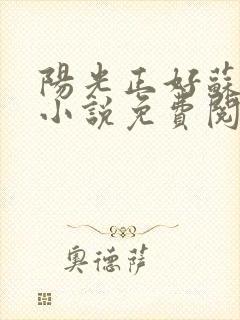 陽光正好蘇
小說免費閱
奧德薩